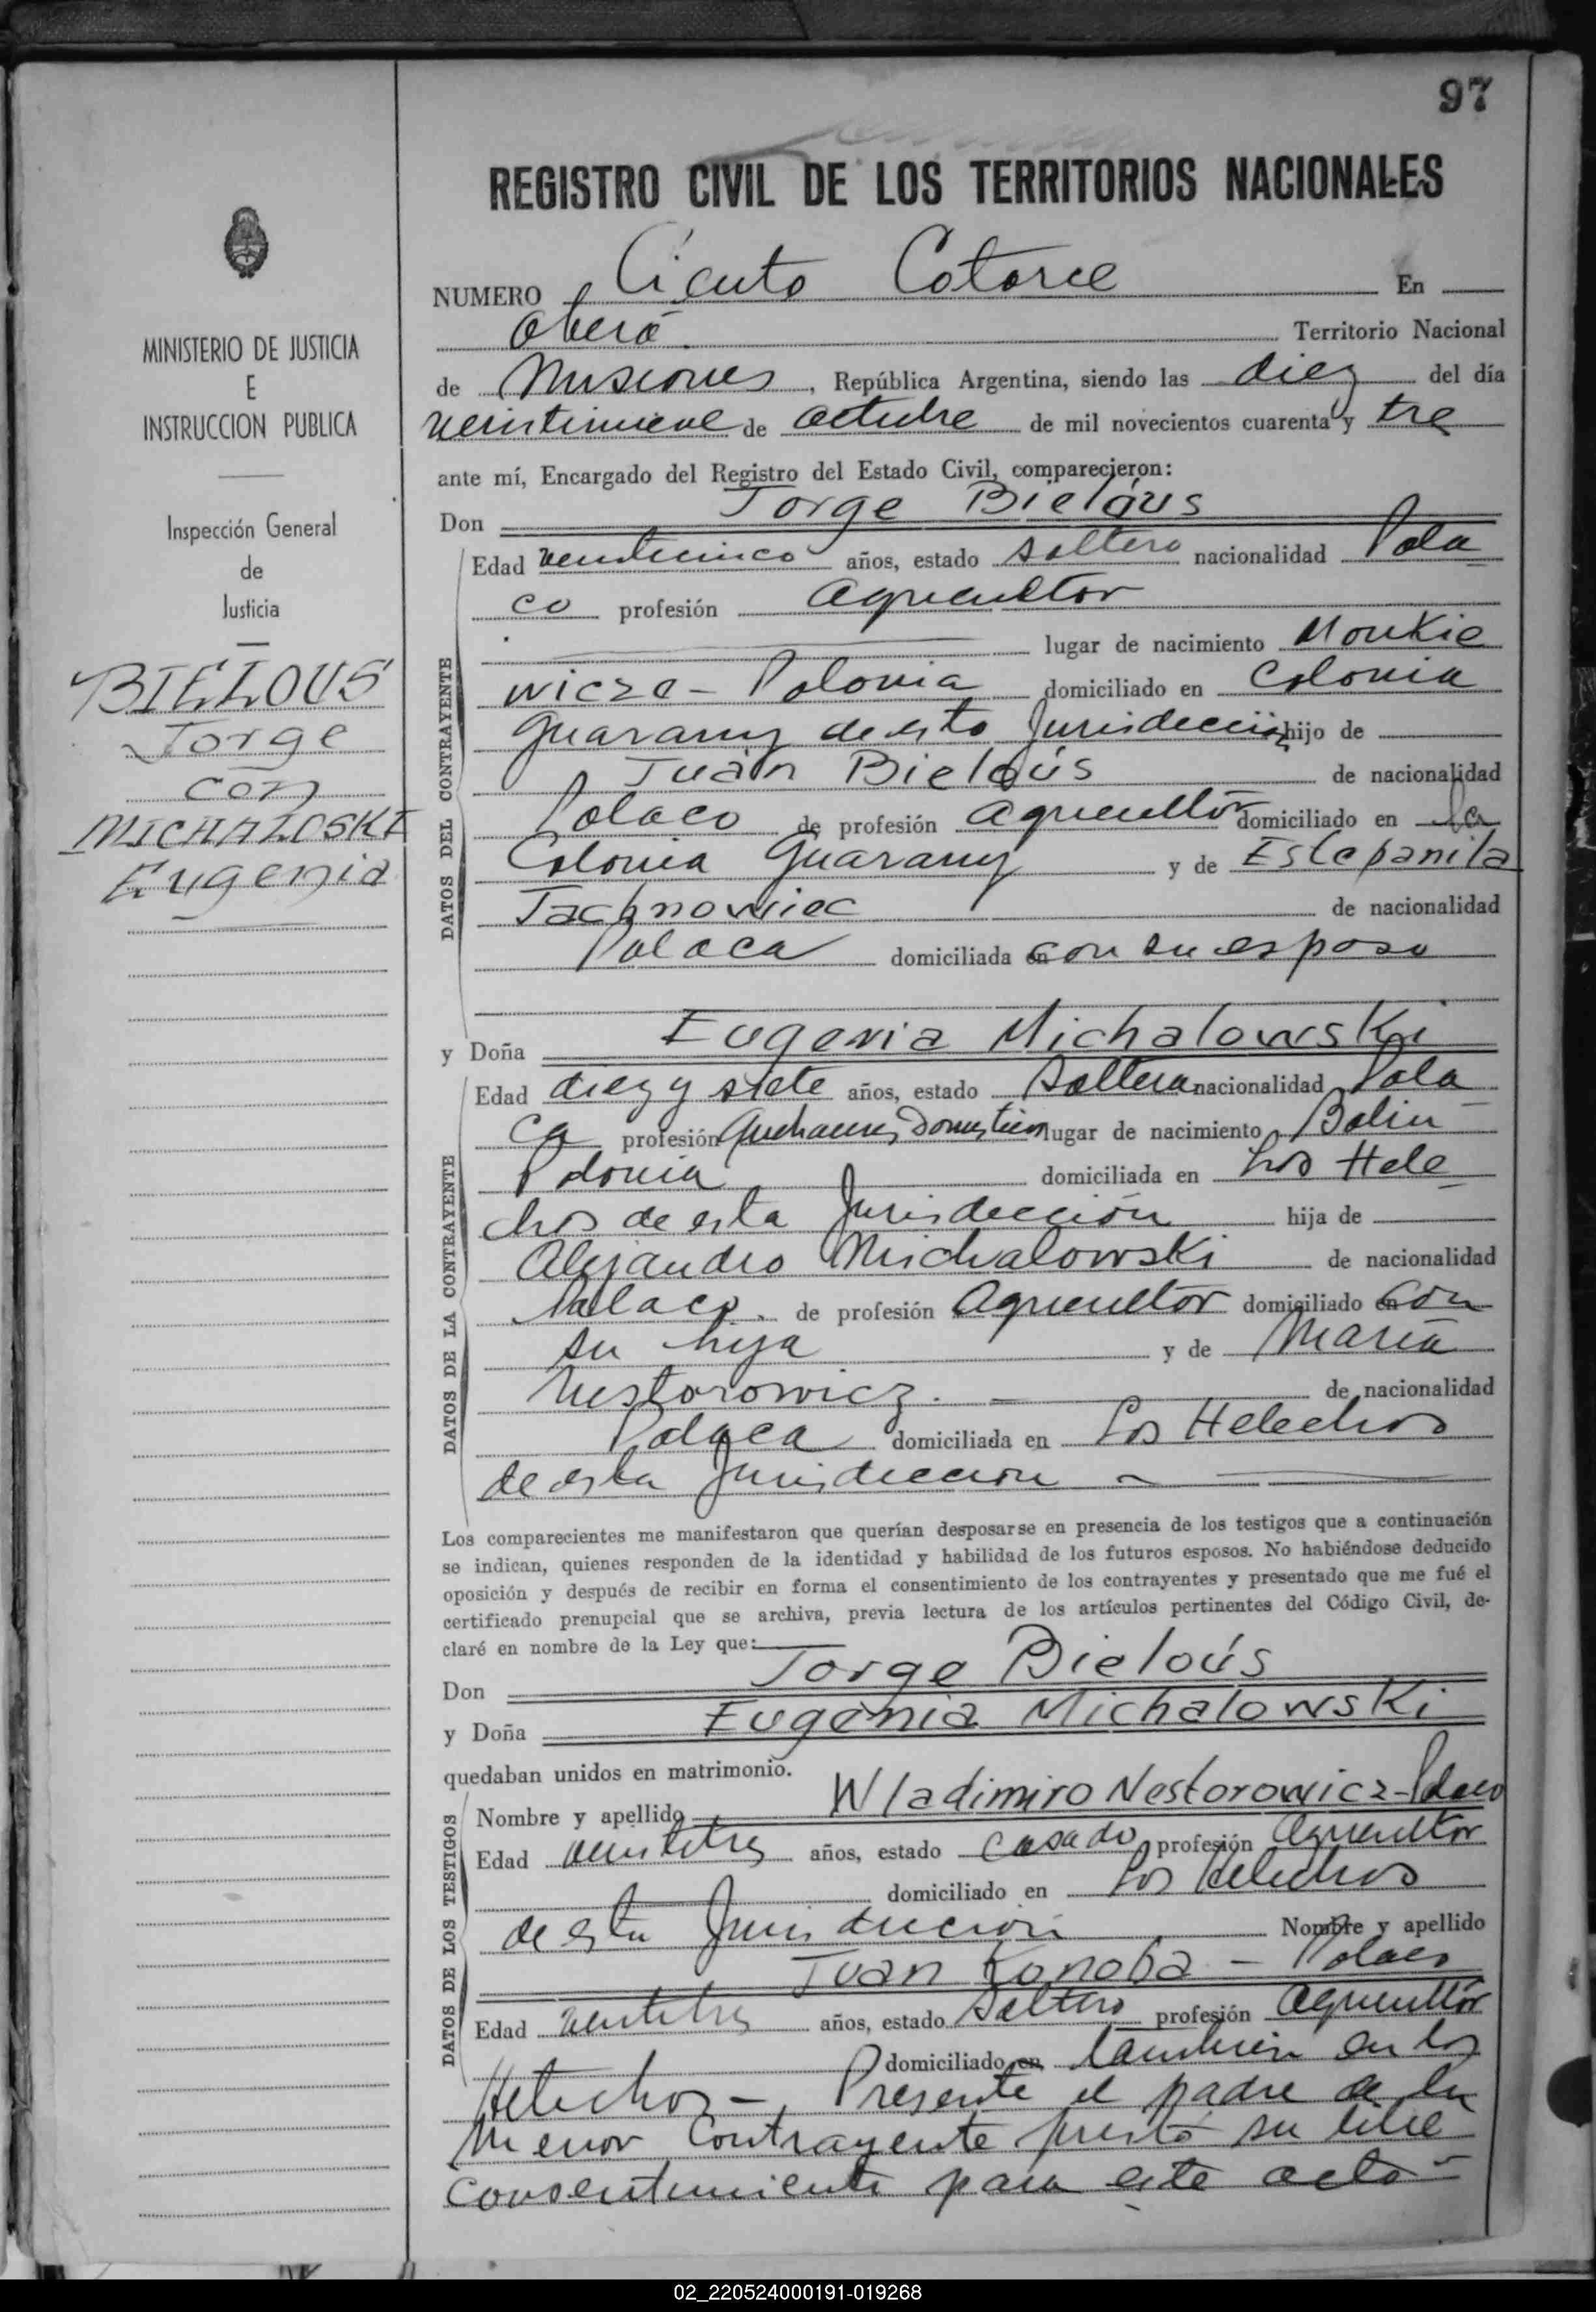 97
REGISTRO CIVIL DE LOS TERRITORIOS NACIONALES
NUMERO Ciento Catorce En
Oberá Territorio Nacional
de Misiones, República Argentina, siendo las diez del día
veintinueve de octubre de mil novecientos cuarenta y tre
ante mí, Encargado del Registro del Estado Civil, comparecieron:
Don Jorge Bieloús
Edad veinticinco años, estado soltero nacionalidad Pola
co profesión agricultor
lugar de nacimiento Monkie
wicze - Polonia domiciliado en Colonia
Guarany de esta Jurisdicción hijo de
Juan Bieloús de nacionalidad
Polaco de profesión agricultor domiciliado en la
Colonia Guarany y de Estepanila
Jachnowiec de nacionalidad
Polaca domiciliada en con su esposo
y Doña Eugenia Michalowski
Edad diez y siete años, estado soltera nacionalidad Pola
ca profesión Quehaceres Domésticos lugar de nacimiento Bolin
Polonia domiciliada en Los Hele
chos de esta Jurisdicción hija de
Alejandro Michalowski de nacionalidad
Polaco. de profesión Agricultor domiciliado en con
su hija y de María
Nestorowicz. de nacionalidad
Polaca domiciliada en Los Helechos
de esta Jurisdicción
Los comparecientes me manifestaron que querían desposarse en presencia de los testigos que a continuación
se indican, quienes responden de la identidad y habilidad de los futuros esposos. No habiéndose deducido
oposición y después de recibir en forma el consentimiento de los contrayentes y presentado que me fué el
certificado prenupcial que se archiva, previa lectura de los artículos pertinentes del Código Civil, de-
claré en nombre de la Ley que:
Don Jorge Bieloús
y Doña Eugenia Michalowski
quedaban unidos en matrimonio.
Nombre y apellido Wladimiro Nestorowicz - Polaco
Edad veintitres años, estado casado profesión agricultor
domiciliado en Los Helechos
de esta Jurisdicción Nombre y apellido
Juan Konoba - Polaco
Edad veintitres años, estado soltero profesión agricultor
domiciliado en también en los
Helechos - Presente el padre de la
menor contrayente prestó su libre
consentimiento para este acto -
MINISTERIO DE JUSTICIA
E
INSTRUCCION PUBLICA
Inspección General
de
Justicia
BIELOUS
Jorge
con
MICHALOSKI
Eugenia
DATOS DEL CONTRAYENTE
DATOS DE LA CONTRAYENTE
DATOS DE LOS TESTIGOS
02_220524000191-019268